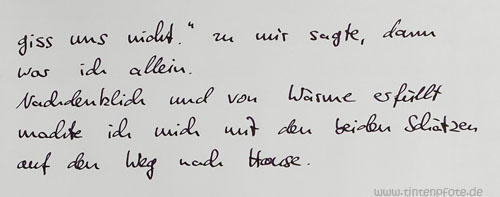 giss uns nicht." zu mir sagte, dann
war ich allein.
Nachdenklich und von Wärme erfüllt
machte ich mich mit den beiden Schätzen
auf den Weg nach Hause.
www.tintenpfote.de